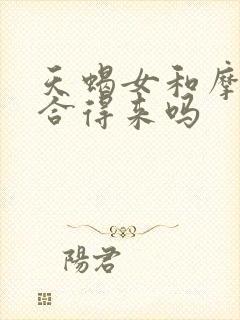 天蝎女和摩
合得来吗
陽君